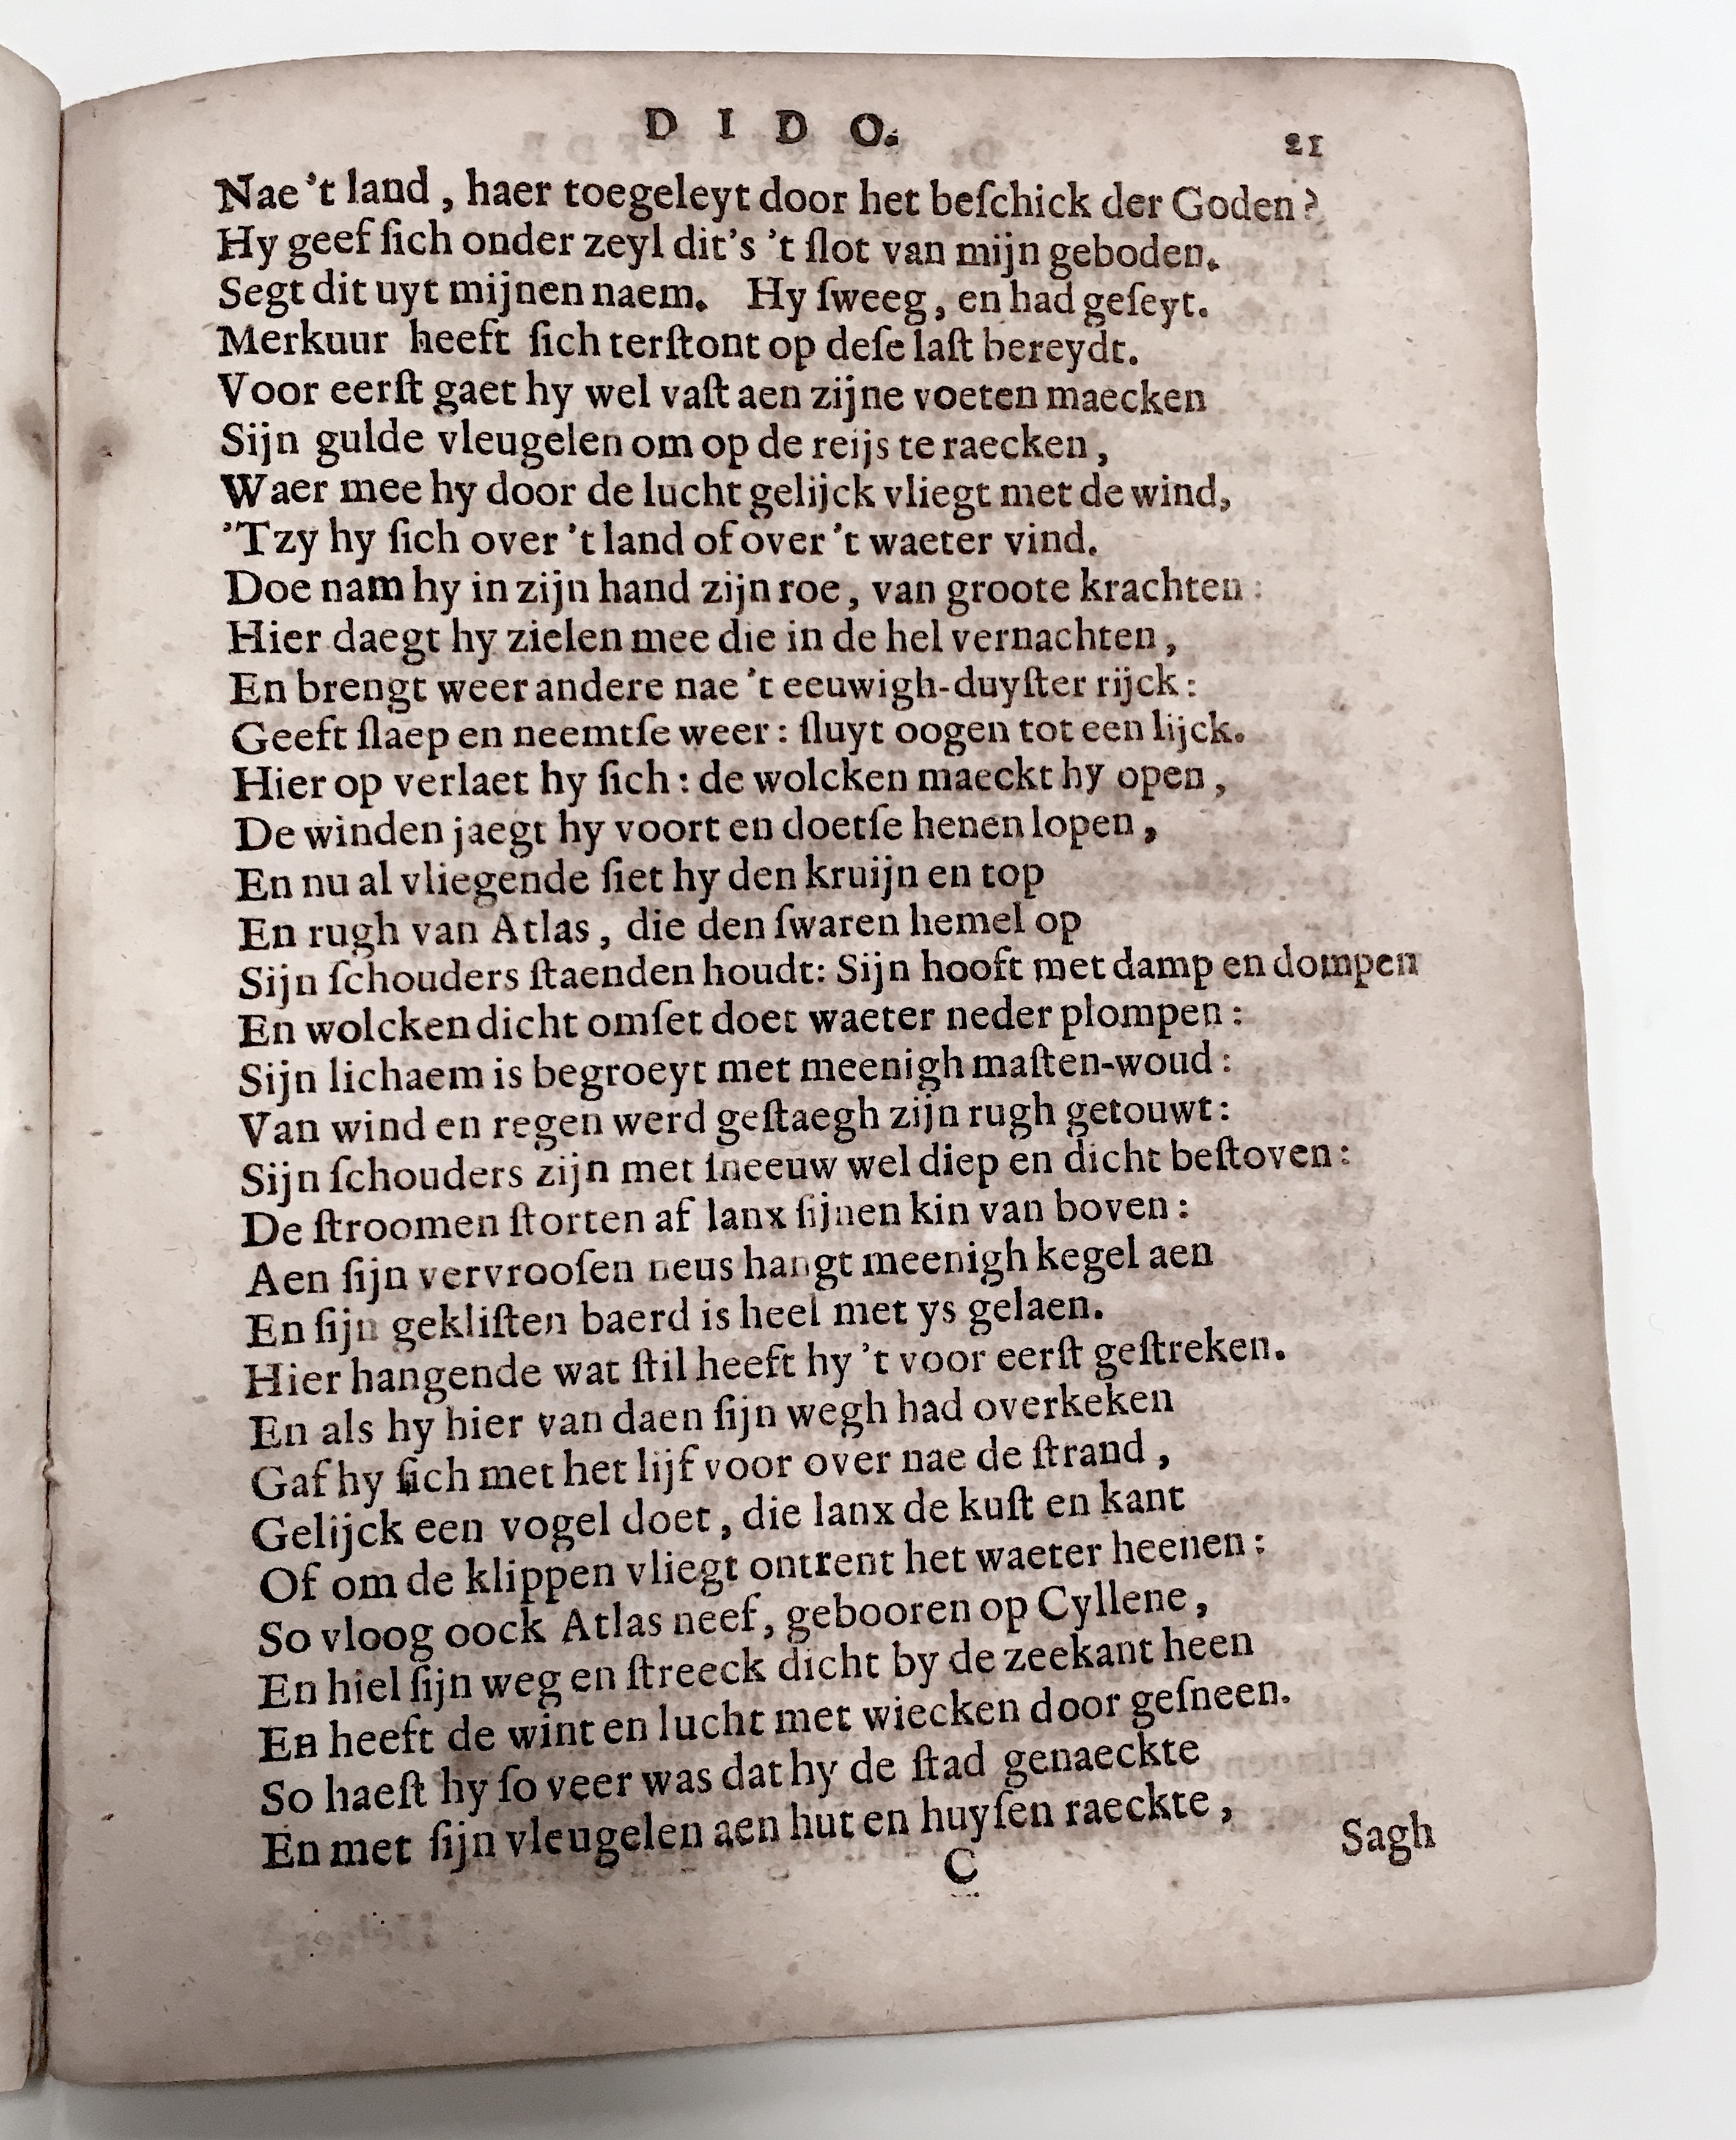 DIDO. 21
Nae 't land, haer toegeleyt door het beſchick der Goden?
Hy geef ſich onder zeyl dit's 't ſlot van mijn geboden.
Segt dit uyt mijnen naem. Hy ſweeg, en had geſeyt.
Merkuur heeft ſich terſtont op deſe laſt bereydt.
Voor eerſt gaet hy wel vaſt aen zijne voeten maecken
Sijn gulde vleugelen om op de reijs te raecken,
Waer mee hy door de lucht gelijck vliegt met de wind,
'Tzy hy ſich over 't land of over 't waeter vind.
Doe nam hy in zijn hand zijn roe, van groote krachten:
Hier daegt hy zielen mee die in de hel vernachten,
En brengt weer andere nae 't eeuwigh-duyſter rijck:
Geeft ſlaep en neemtſe weer: ſluyt oogen tot een lijck.
Hier op verlaet hy ſich: de wolcken maeckt hy open,
De winden jaegt hy voort en doetſe henen lopen,
En nu al vliegende ſiet hy den kruijn en top
En rugh van Atlas, die den ſwaren hemel op
Sijn ſchouders ſtaenden houdt: Sijn hooft met damp en dompen
En wolcken dicht omſet doet waeter neder plompen:
Sijn lichaem is begroeyt met meenigh maſten-woud:
Van wind en regen werd geſtaegh zijn rugh getouwt:
Sijn ſchouders zijn met ſneeuw wel diep en dicht beſtoven:
De ſtroomen ſtorten af lanx ſijnen kin van boven:
Aen ſijn vervrooſen neus hangt meenigh kegel aen
En ſijn gekliſten baerd is heel met ys gelaen.
Hier hangende wat ſtil heeft hy 't voor eerſt geſtreken.
En als hy hier van daen ſijn wegh had overkeken
Gaf hy ſich met het lijf voor over nae de ſtrand,
Gelijck een vogel doet, die lanx de kuſt en kant
Of om de klippen vliegt ontrent het waeter heenen:
So vloog oock Atlas neef, gebooren op Cyllene,
En hiel ſijn weg en ſtreeck dicht by de zeekant heen
En heeft de wint en lucht met wiecken door geſneen.
So haeſt hy ſo veer was dat hy de ſtad genaeckte
En met ſijn vleugelen aen hut en huyſen raeckte,
C Sagh